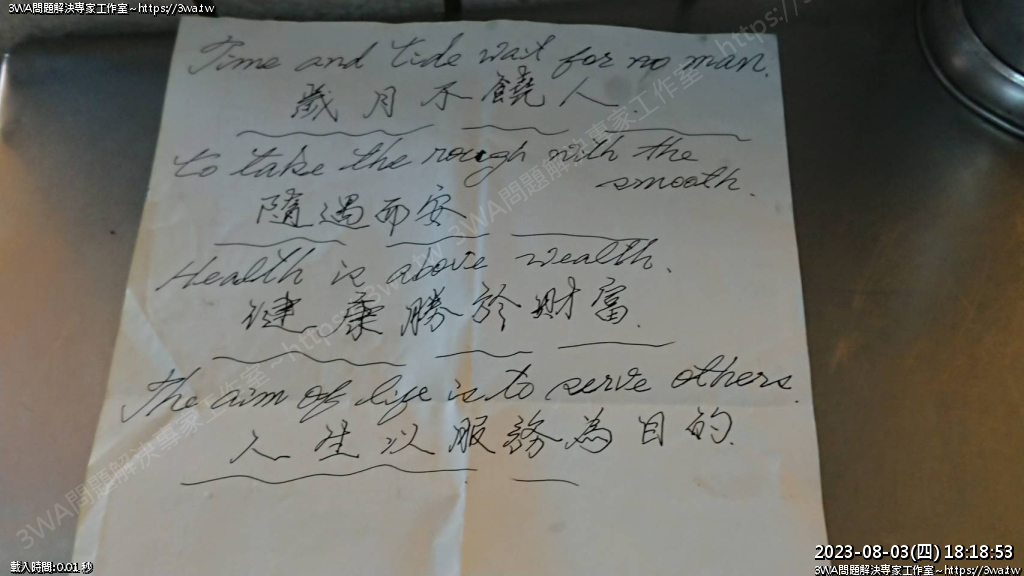 3WA問題解決專家工作室~https://3wa.tw
Time and tide wait for no man.
歲月不饒人.
to take the rough with the
smooth.
隨遇而安
Health is above wealth.
健康勝於財富.
The aim of life is to serve others.
人生以服務為目的.
載入時間:0.01 秒
2023-08-03(四) 18:18:53
3WA問題解決專家工作室~https://3wa.tw